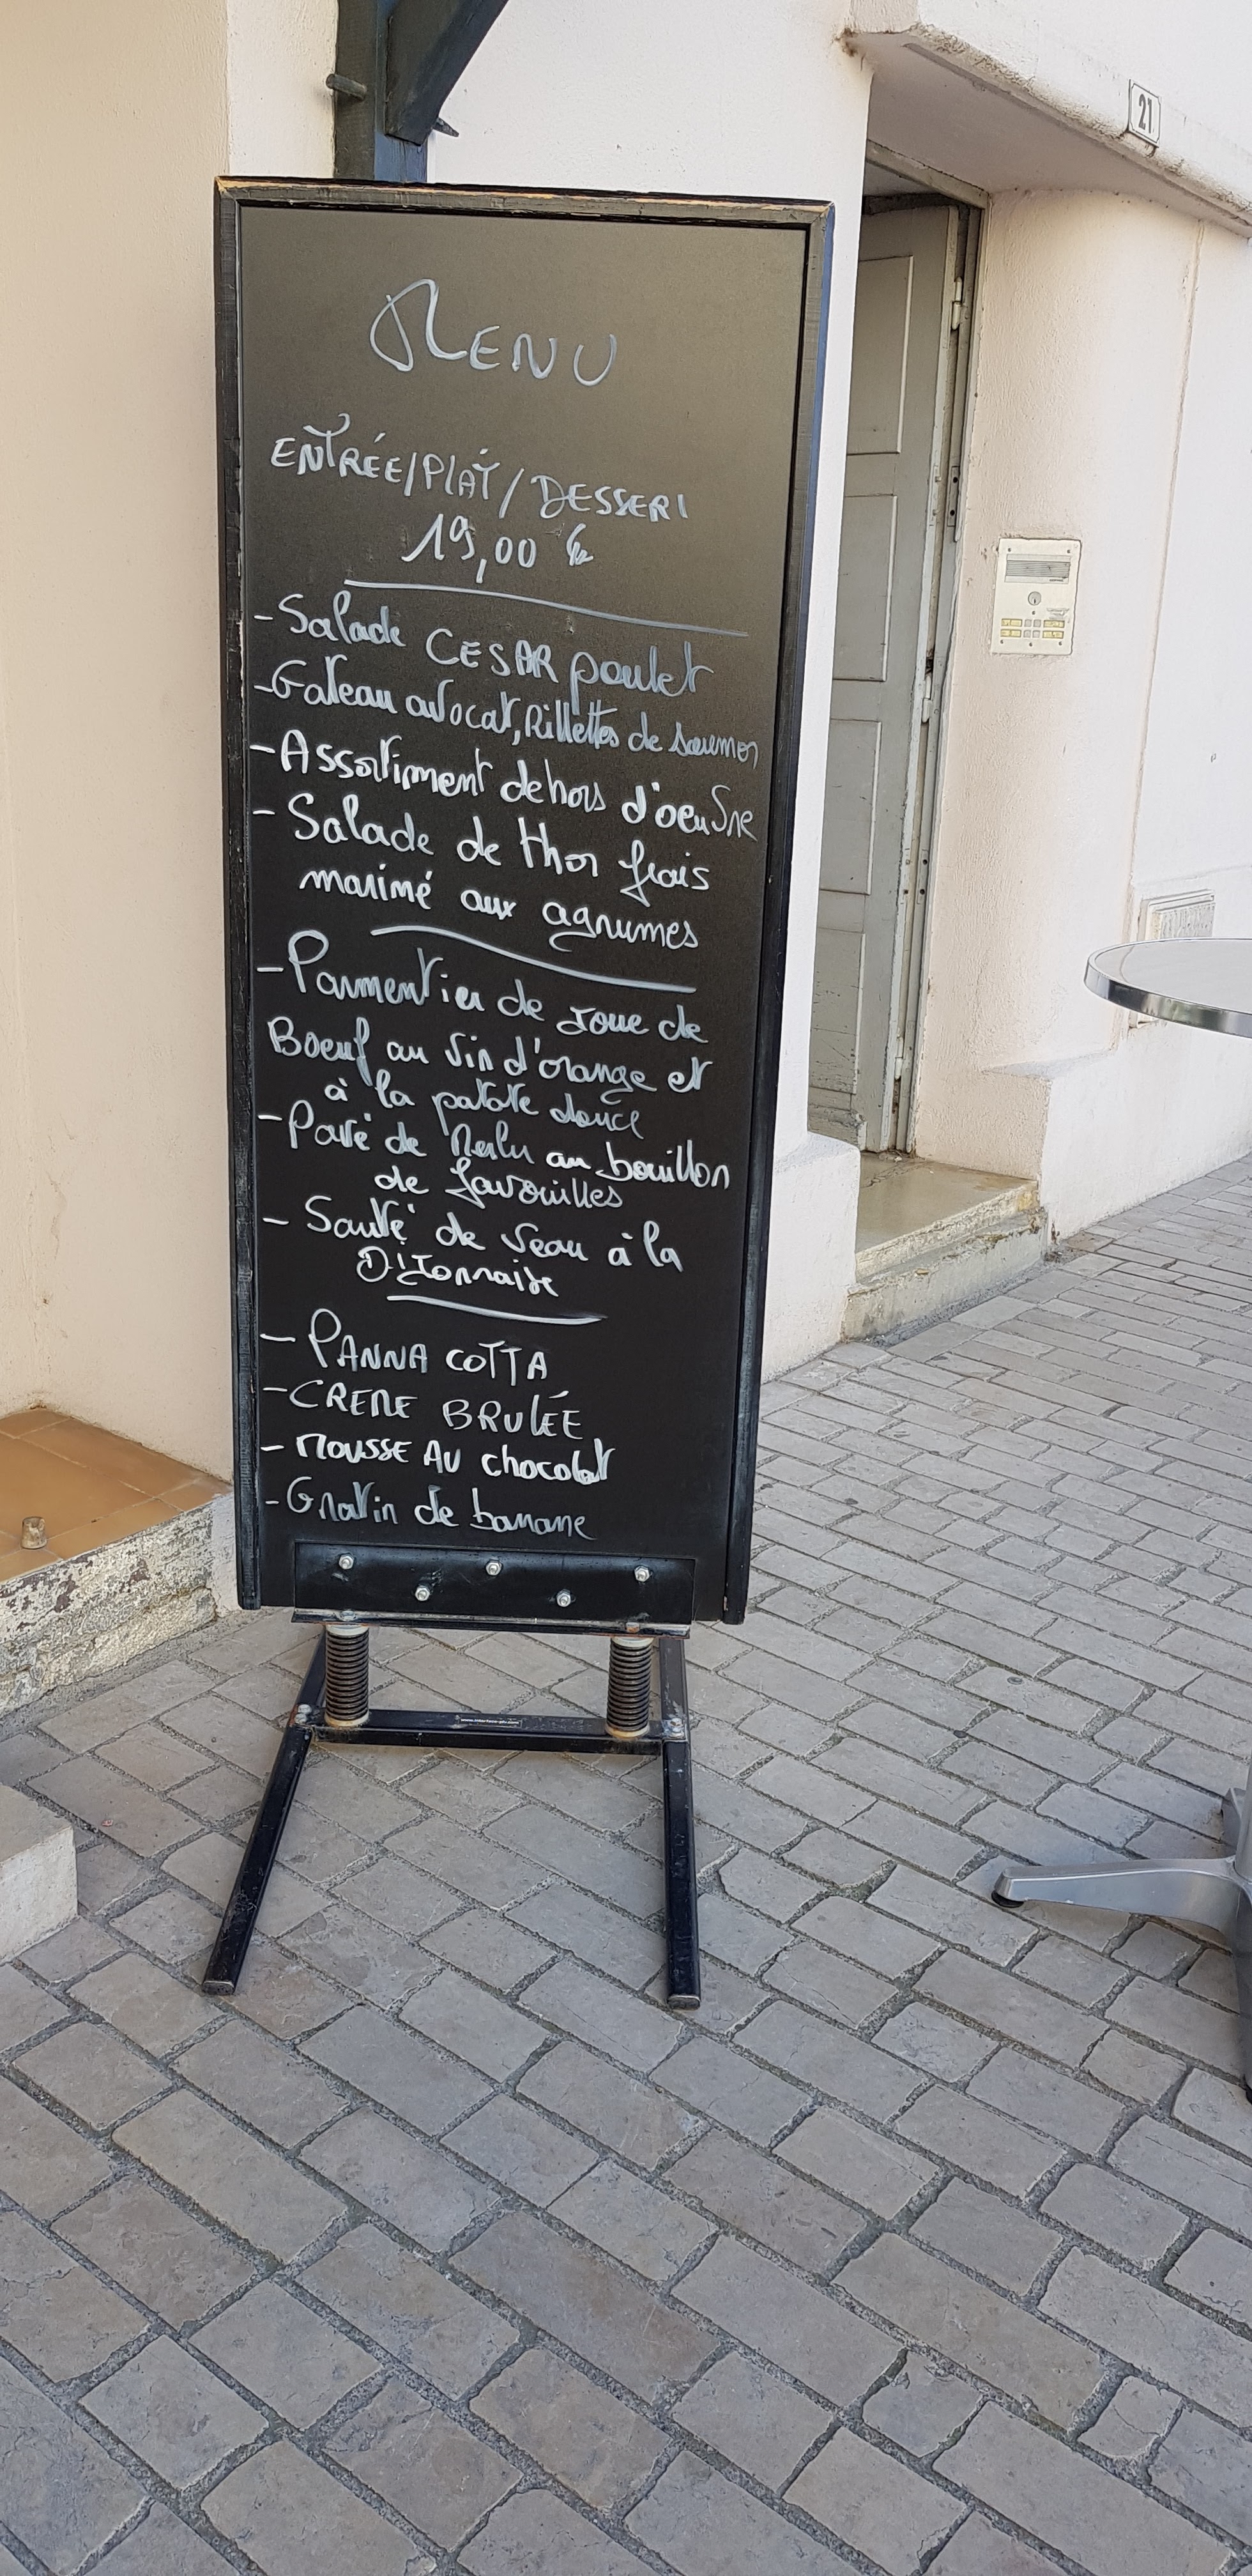 21
MENU
ENTRÉE/PLAT/DESSERT
19,00 €
- Salade CESAR poulet
- Gateau avocat, Rillettes de saumon
- Assortiment de hors d'oeuvre
- Salade de thon frais
mariné aux agrumes
- Parmentier de Joue de
Boeuf au vin d'orange et
à la patate douce
- Pavé de Merlu au bouillon
de favouilles
- Sauté de veau à la
DiJonnaise
- PANNA COTTA
- CREME BRULÉE
- MOUSSE AU chocolat
- Gratin de banane